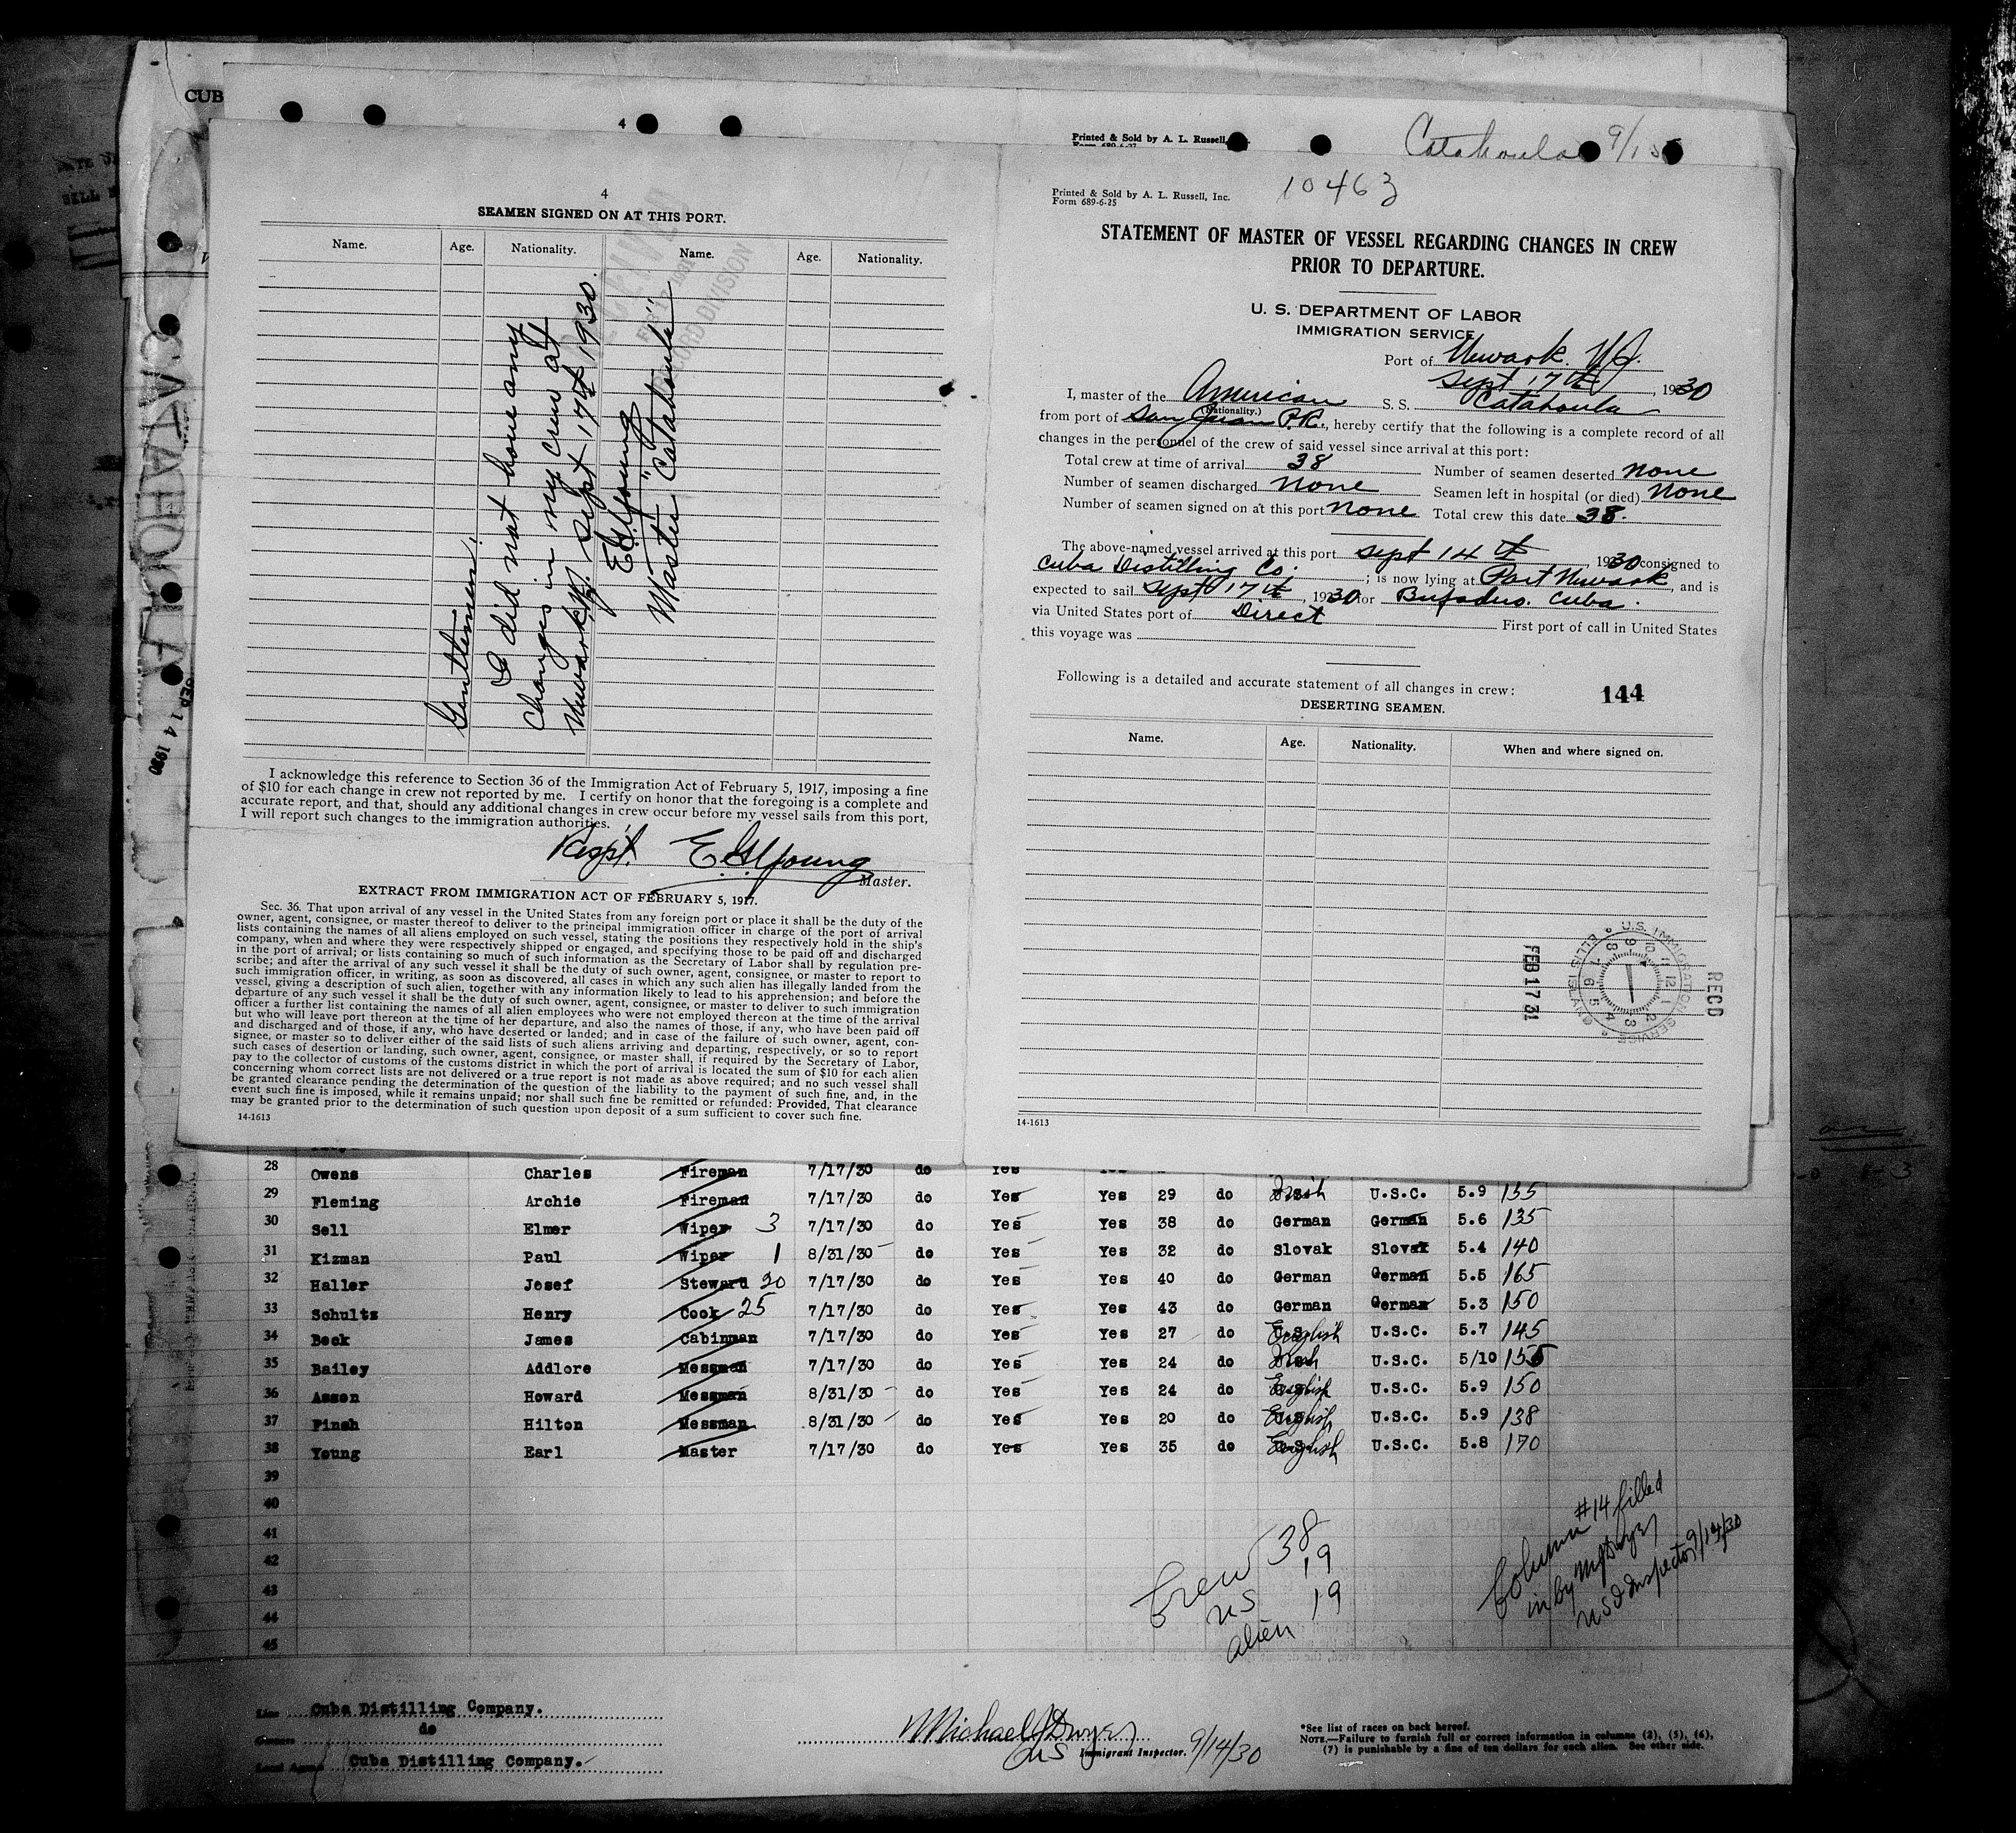 CUB
4
Printed & Sold by A. L. Russell,
Catahoula 9/15
CATAHOULA
SEP 14 1930
4
SEAMEN SIGNED ON AT THIS PORT.
Name. Age. Nationality. Name. Age. Nationality.
RECORD DIVISION
Gentlemen.
I did not have any
changes in my crew at
Newark, N.J. Sept 17th 1930.
E.G. Young
Master "Catahoula"
I acknowledge this reference to Section 36 of the Immigration Act of February 5, 1917, imposing a fine
of $10 for each change in crew not reported by me. I certify on honor that the foregoing is a complete and
accurate report, and that, should any additional changes in crew occur before my vessel sails from this port,
I will report such changes to the immigration authorities.
Respt. E.G. Young
Master.
EXTRACT FROM IMMIGRATION ACT OF FEBRUARY 5, 1917.
Sec. 36. That upon arrival of any vessel in the United States from any foreign port or place it shall be the duty of the
owner, agent, consignee, or master thereof to deliver to the principal immigration officer in charge of the port of arrival
lists containing the names of all aliens employed on such vessel, stating the positions they respectively hold in the ship's
company, when and where they were respectively shipped or engaged, and specifying those to be paid off and discharged
in the port of arrival; or lists containing so much of such information as the Secretary of Labor shall by regulation pre-
scribe; and after the arrival of any such vessel it shall be the duty of such owner, agent, consignee, or master to report to
such immigration officer, in writing, as soon as discovered, all cases in which any such alien has illegally landed from the
vessel, giving a description of such alien, together with any information likely to lead to his apprehension; and before the
departure of any such vessel it shall be the duty of such owner, agent, consignee, or master to deliver to such immigration
officer a further list containing the names of all alien employees who were not employed thereon at the time of the arrival
but who will leave port thereon at the time of her departure, and also the names of those, if any, who have been paid off
and discharged and of those, if any, who have deserted or landed; and in case of the failure of such owner, agent, con-
signee, or master so to deliver either of the said lists of such aliens arriving and departing, respectively, or so to report
such cases of desertion or landing, such owner, agent, consignee, or master shall, if required by the Secretary of Labor,
pay to the collector of customs of the customs district in which the port of arrival is located the sum of $10 for each alien
concerning whom correct lists are not delivered or a true report is not made as above required; and no such vessel shall
be granted clearance pending the determination of the question of the liability to the payment of such fine, and, in the
event such fine is imposed, while it remains unpaid; nor shall such fine be remitted or refunded: Provided, That clearance
may be granted prior to the determination of such question upon deposit of a sum sufficient to cover such fine.
14-1613
Printed & Sold by A. L. Russell, Inc.
Form 689-6-25
10463
STATEMENT OF MASTER OF VESSEL REGARDING CHANGES IN CREW
PRIOR TO DEPARTURE.
U. S. DEPARTMENT OF LABOR
IMMIGRATION SERVICE
Port of Newark. N.J.
Sept 17th, 1930
I, master of the American S. S. Catahoula
(Nationality.)
from port of San Juan P.R., hereby certify that the following is a complete record of all
changes in the personnel of the crew of said vessel since arrival at this port:
Total crew at time of arrival 38 Number of seamen deserted None
Number of seamen discharged None Seamen left in hospital (or died) None
Number of seamen signed on at this port None Total crew this date 38.
The above-named vessel arrived at this port Sept 14th, 1930 consigned to
Cuba Distilling Co.; is now lying at Port Newark, and is
expected to sail Sept 17th, 1930 for Bufadero. Cuba.
via United States port of Direct First port of call in United States
this voyage was
Following is a detailed and accurate statement of all changes in crew:
144
DESERTING SEAMEN.
Name. Age. Nationality. When and where signed on.
FEB 17 31
U.S. IMMIGRATION SERVICE ELLIS ISLAND
REC'D
14-1613
28 Owens Charles Fireman 7/17/30 do Yes
29 Fleming Archie Fireman 7/17/30 do Yes Yes 29 do Irish U.S.C. 5.9 155
30 Sell Elmer Wiper 3 7/17/30 do Yes Yes 38 do German German 5.6 135
31 Kizman Paul Wiper 1 8/31/30 do Yes Yes 32 do Slovak Slovak 5.4 140
32 Haller Josef Steward 20 7/17/30 do Yes Yes 40 do German German 5.5 165
33 Schultz Henry Cook 25 7/17/30 do Yes Yes 43 do German German 5.3 150
34 Beck James Cabinman 7/17/30 do Yes Yes 27 do English U.S.C. 5.7 145
35 Bailey Addlore Messman 7/17/30 do Yes Yes 24 do Irish U.S.C. 5/10 155
36 Asson Howard Messman 8/31/30 do Yes Yes 24 do English U.S.C. 5.9 150
37 Finch Hilton Messman 8/31/30 do Yes Yes 20 do English U.S.C. 5.9 138
38 Young Earl Master 7/17/30 do Yes Yes 35 do English U.S.C. 5.8 170
39
40
41
42
43
44
45
Crew 38
US 19
alien 19
Column #14 filled
in by M J Dwyer
US I Inspector 9/14/30
Line Cuba Distilling Company.
Owners do
Local Agents Cuba Distilling Company.
Michael J Dwyer
US Immigrant Inspector. 9/14/30
*See list of races on back hereof.
NOTE.—Failure to furnish full or correct information in columns (2), (5), (6),
(7) is punishable by a fine of ten dollars for each alien. See other side.